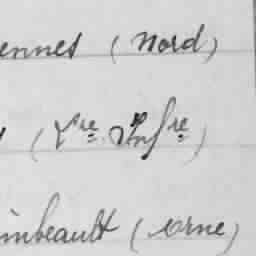 ennes (Nord)
(Sre Infre)
imbeault (Orne)